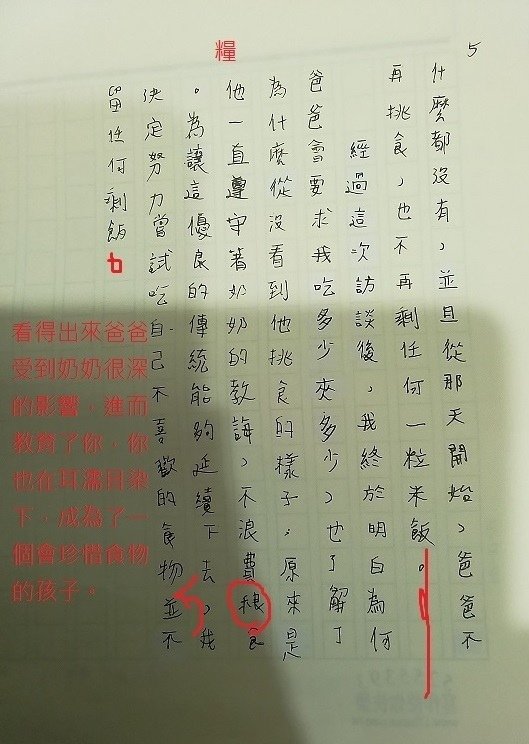 5
什麼都沒有，並且從那天開始，爸爸不
再挑食，也不再剩任何一粒米飯。
經過這次訪談後，我終於明白為何
爸爸會要求我吃多少夾多少，也了解了
為什麼從沒看到他挑食的樣子，原來是
糧
他一直遵守著奶奶的教誨，不浪費粮食
。為讓這優良的傳統能夠延續下去，我
決定努力嘗試吃自己不喜歡的食物並不
留任何剩飯。
看得出來爸爸
受到奶奶很深
的影響，進而
教育了你，你
也在耳濡目染
下，成為了一
個會珍惜食物
的孩子。